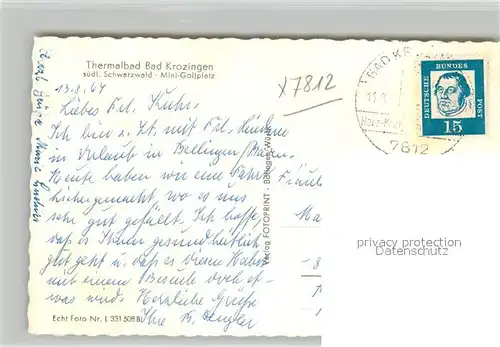 Thermalbad Bad Krozingen
südl. Schwarzwald - Mini-Golfplatz
X7812
BAD KR
7812
DEUTSCHE BUNDES POST
15
13.8.64
Liebes Frl. Kuhn.
Ich bin z. Zt. mit Frl.
in Urlaub in Bellingen/Baden.
Heute haben wir eine Fahrt
hierher gemacht, wo es uns
sehr gut gefällt. Ich hoffe,
daß es Ihnen gesundheitlich
gut geht u. daß es dieses Jahr
mit einem Besuch doch et-
was wird. Herzliche Grüße
Ihre
Fräule
Ma
Verlag FOTOPRINT
Echt Foto Nr. L 331 508 B
privacy protection
Datenschutz